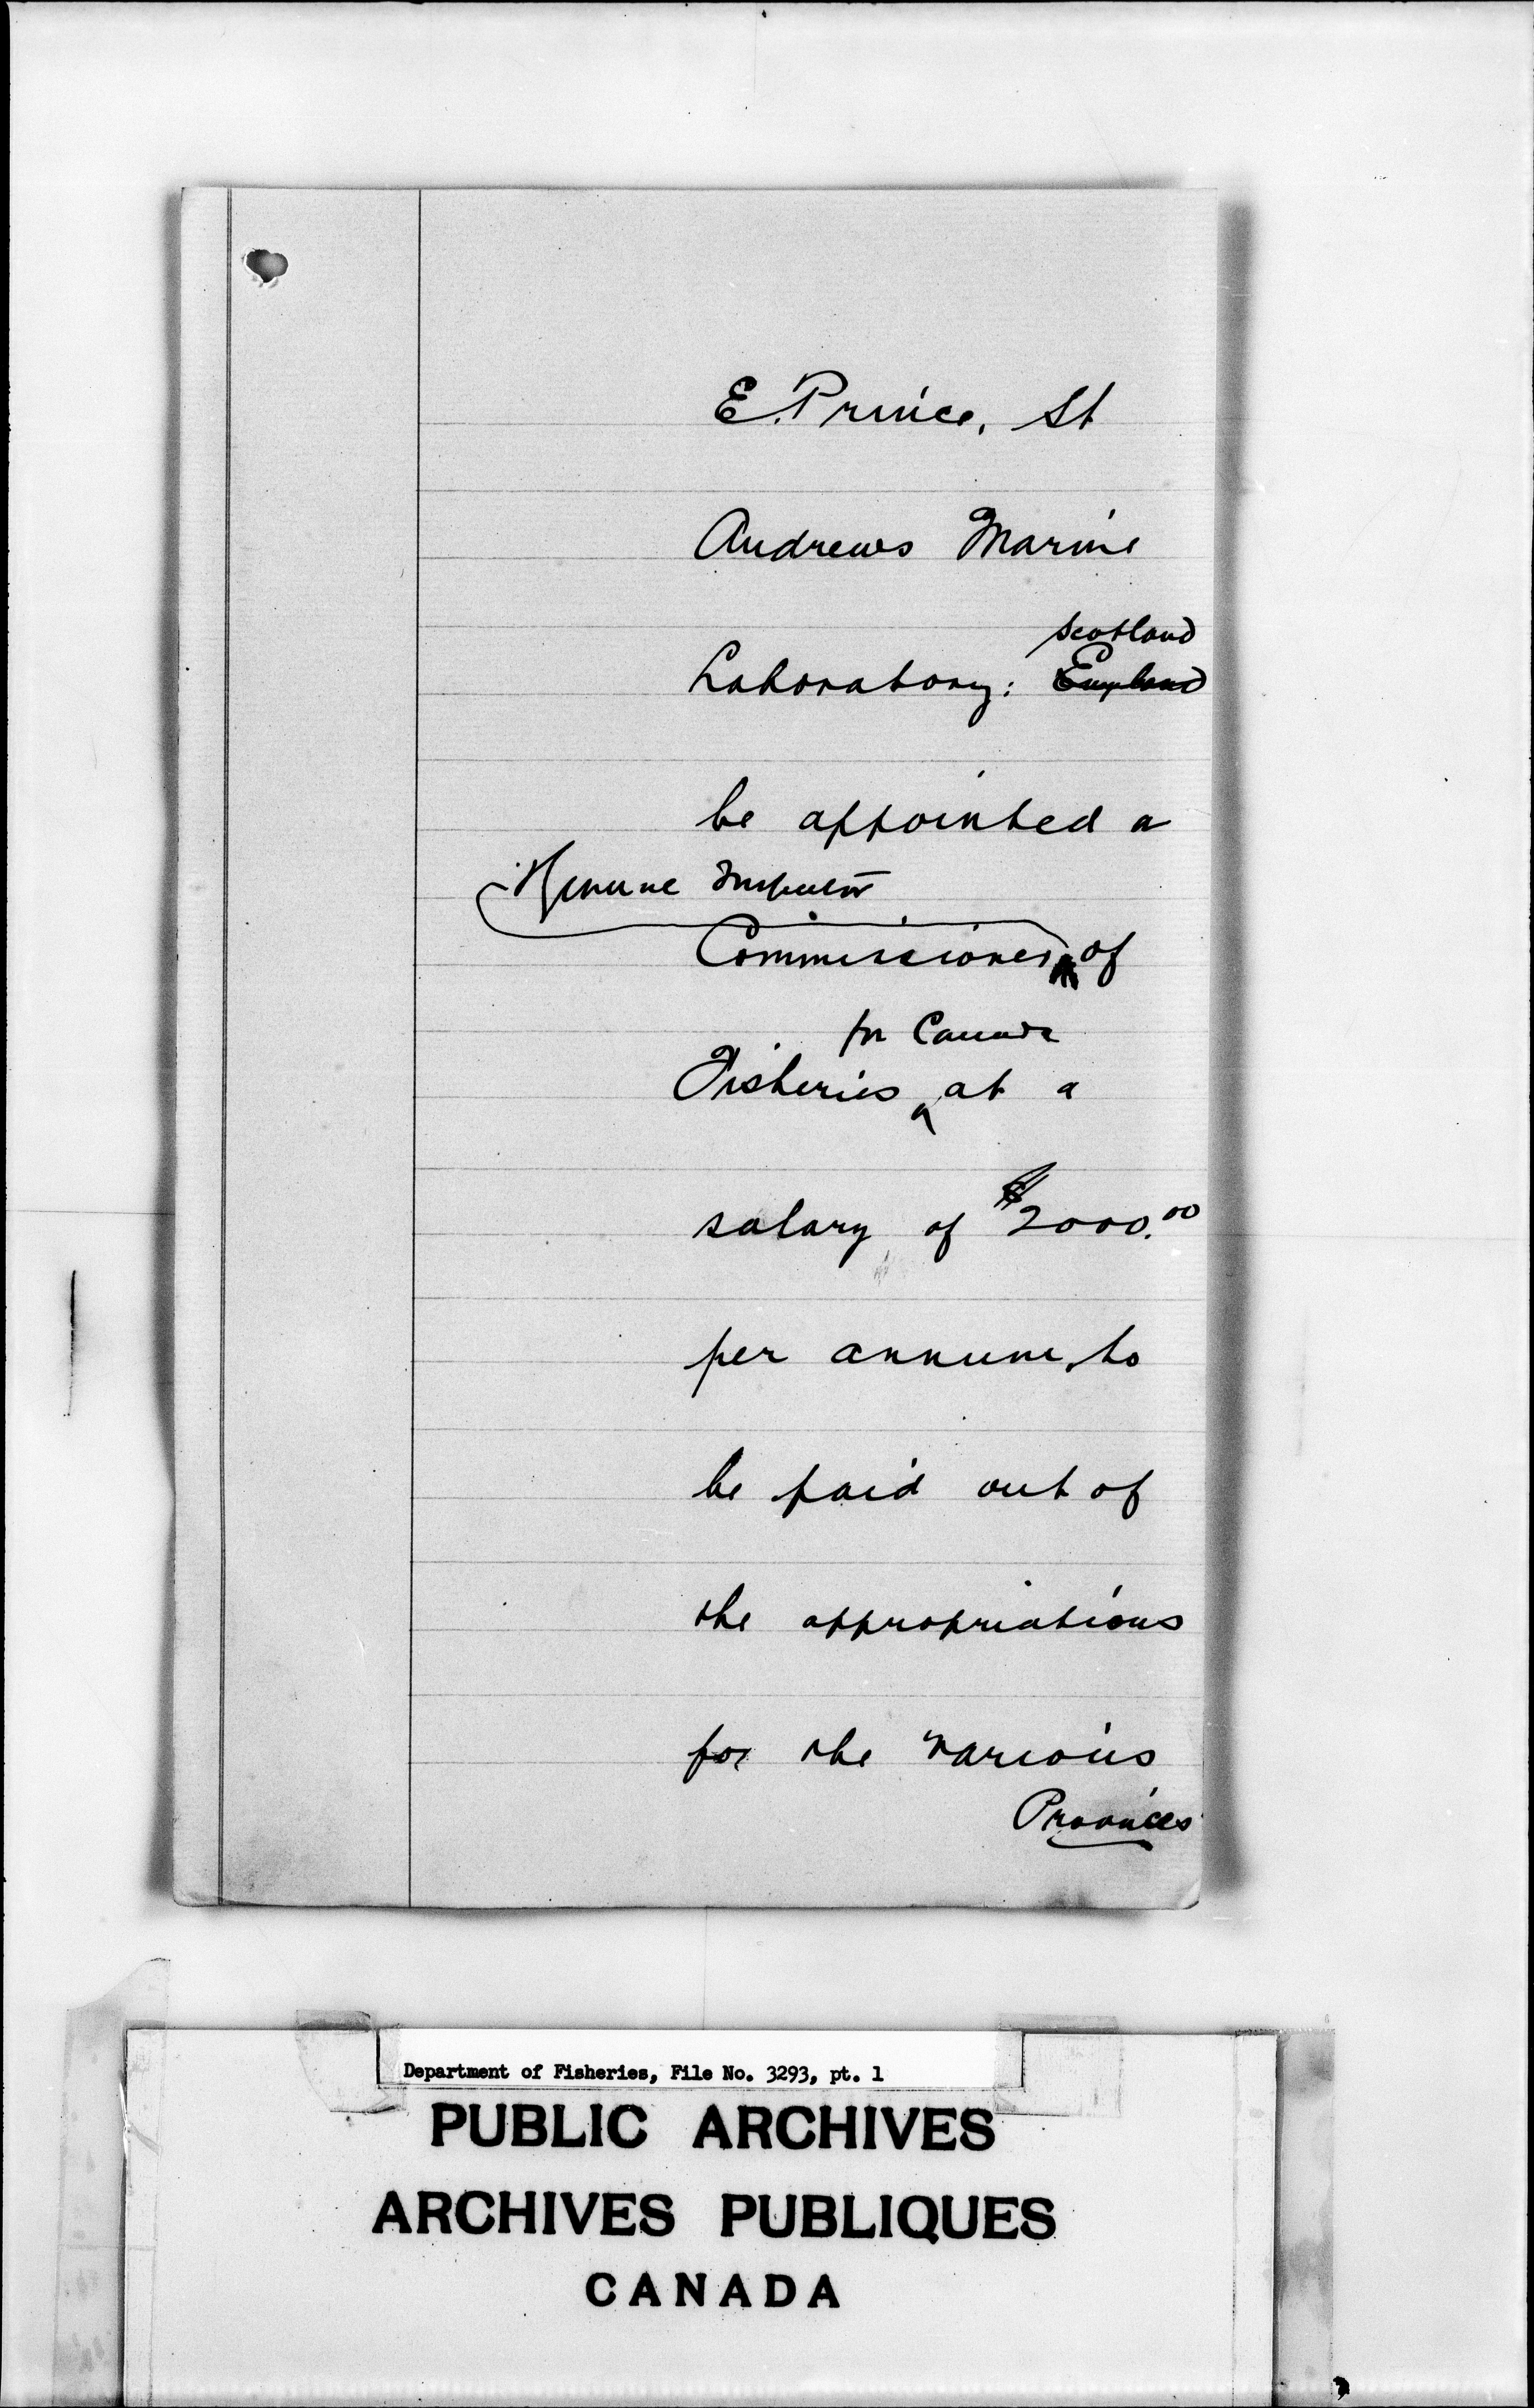 E. Prince, St
Andrews Marine
Scotland
Laboratory: England
be appointed a
Inspector
Commissioner of
for Canada
Fisheries at a
salary of $2000.00
per annum, to
be paid out of
the appropriations
for the various
Provinces
Department of Fisheries, File No. 3293, pt. 1
PUBLIC ARCHIVES
ARCHIVES PUBLIQUES
CANADA